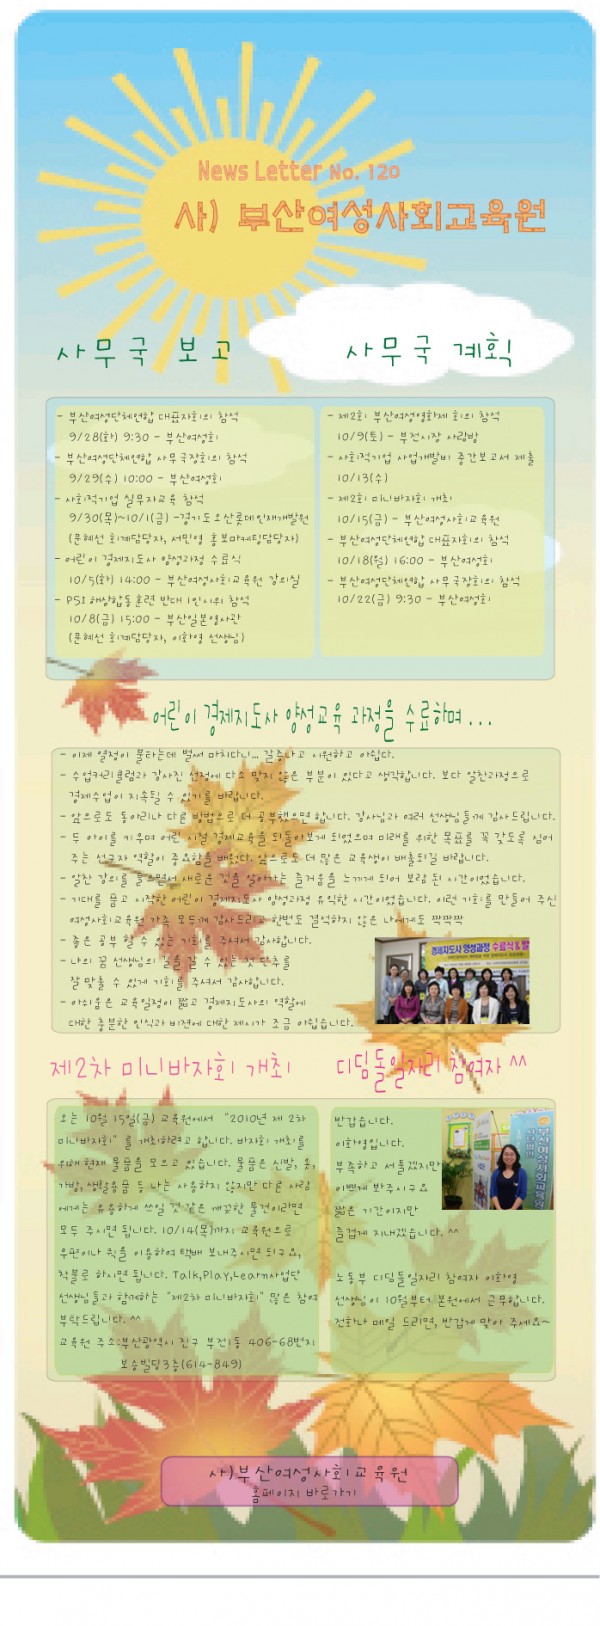 News Letter No. 120
사) 부산여성사회교육원
사무국 보고
사무국 계획
- 부산여성단체연합 대표자회의 참석
9/28(화) 9:30 - 부산여성회
- 부산여성단체연합 사무국장회의 참석
9/29(수) 10:00 - 부산여성회
- 사회적기업 실무자교육 참석
9/30(목)~10/1(금) -경기도오산롯데인재개발원
(문혜선 회계담당자, 서민영 홍보마케팅담당자)
- 어린이 경제지도사 양성과정 수료식
10/5(화) 14:00 - 부산여성사회교육원 강의실
- PSI 해상합동훈련 반대 1인시위 참석
10/8(금) 15:00 - 부산일본영사관
(문혜선 회계담당자, 이화영 선생님)
- 제2회 부산여성영화제 회의 참석
10/9(토) - 부전시장 사랑방
- 사회적기업 사업개발비 중간보고서 제출
10/13(수)
- 제2회 미니바자회 개최
10/15(금) - 부산여성사회교육원
- 부산여성단체연합 대표자회의 참석
10/18(월) 16:00 - 부산여성회
- 부산여성단체연합 사무국장회의 참석
10/22(금) 9:30 - 부산여성회
어린이 경제지도사 양성교육 과정을 수료하며...
- 이제 열정이 불타는데 벌써 마치다니... 갈증나고 시원하고 아쉽다.
- 수업커리큘럼과 강사진 선정에 다소 맞지 않은 부분이 있다고 생각합니다. 보다 알찬과정으로
경제수업이 지속될 수 있기를 바랍니다.
- 앞으로도 동아리나 다른 방법으로 더 공부했으면 합니다. 강사님과 여러 선생님들께 감사드립니다.
- 두 아이를 키우며 어린 시절 경제교육을 되돌아보게 되었으며 미래를 위한 목표를 꼭 갖도록 심어
주는 선구자 역할이 중요함을 배웠다. 앞으로도 더 많은 교육생이 배출되길 바랍니다.
- 알찬 강의를 들으면서 새로운 것을 알아가는 즐거움을 느끼게 되어 보람 된 시간이었습니다.
- 기대를 품고 시작한 어린이 경제지도사 양성과정 유익한 시간이었습니다. 이런 기회를 만들어 주신
여성사회교육원 가족 모두께 감사드리고 한번도 결석하지 않은 나에게도 짝짝짝
- 좋은 공부 할 수 있는 기회를 주셔서 감사합니다.
- 나의 꿈 선생님의 길을 갈 수 있는 첫 단추를
잘 맞출 수 있게 기회를 주셔서 감사합니다.
- 아쉬움은 교육일정이 짧고 경제지도사의 역할에
대한 충분한 인식과 비전에 대한 제시가 조금 아쉽습니다.
경제지도사 양성과정 수료식&발
제2차 미니바자회 개최
디딤돌일자리 참여자 ^^
오는 10월 15일(금) 교육원에서 "2010년 제 2차
미니바자회" 를 개최하려고 합니다. 바자회 개최를
위해 현재 물품을 모으고 있습니다. 물품은 신발, 옷,
가방, 생활용품 등 나는 사용하지 않지만 다른 사람
에게는 유용하게 쓰일 것 같은 깨끗한 물건이라면
모두 주시면 됩니다. 10/14(목)까지 교육원으로
우편이나 퀵을 이용하여 택배 보내주시면 되구요,
착불로 하시면 됩니다. Talk,Play,Learn사업단
선생님들과 함께하는 "제2차 미니바자회" 많은 참여
부탁드립니다. ^^
교육원 주소:부산광역시 진구 부전1동 406-68번지
보승빌딩3층(614-849)
반갑습니다.
이화영입니다.
부족하고 서툴겠지만
이쁘게 봐주시구요
짧은 기간이지만
즐겁게 지내겠습니다. ^^
노동부 디딤돌일자리 참여자 이화영
선생님이 10월부터 본원에서 근무합니다.
전화나 메일 드리면, 반갑게 맞아 주세요~
부산여성사회교육원
사)부산여성사회교육원
홈페이지 바로가기